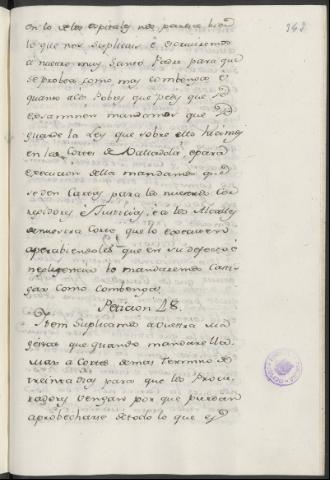 342
en lo de los ospitales nos paresce bien
lo que nos Suplicais e escriuiremos
a nuestro muy Santo Padre para que
se probea como mas combenga e
quanto a los Pobres que pedis que se
examinen mandamos que se
guarde la Ley que sobre ello hicimos
en las Cortes de Valladolid, e para
execucion della mandamos que
se den Cartas para los nuestros Cor-
regidores e Justicias, e a los Alcaldes
de nuestra Corte que lo executen
apercibiendoles que en su defecto e
negligencia lo mandaremos Casti-
gar como Combenga.
Peticion 48.
Iten Suplicamos a vuestra Ma-
gestad que quando mandare lla-
mar a Cortes de mas termino de
treinta dias para que los Procu-
radores vengan por que puedan
aprobecharse de todo lo que es